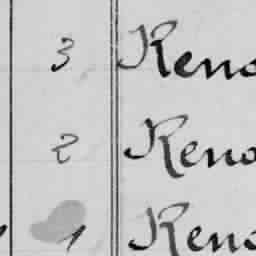 3 Reno
2 Reno
1 Reno